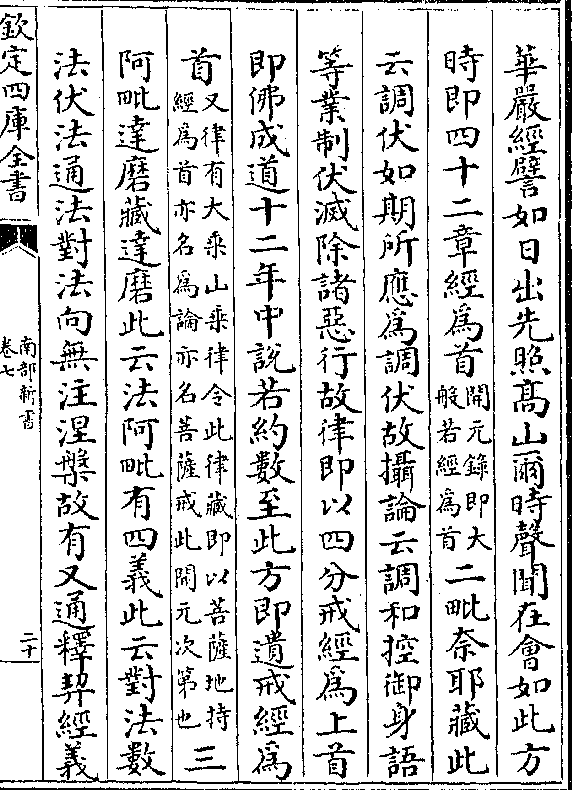 華嚴經譬如日出先照髙山爾時聲聞在會如此方
時即四十二章經為首開元錄即大般若經為首二毗奈耶藏此
云調伏如期所應為調伏故攝論云調和控御身語
等業制伏滅除諸惡行故律即以四分戒經為上首
即佛成道十二年中說若約數至此方即遺戒經為
首又律有大乘山乘律令此律藏即以菩薩地持經為首亦名為論亦名菩薩戒此開元次第也三
阿毗達磨藏達磨此云法阿毗有四義此云對法數
法伏法通法對法向無注涅槃故有又通釋契經義
欽定四庫全書
南部新書
卷七
二十